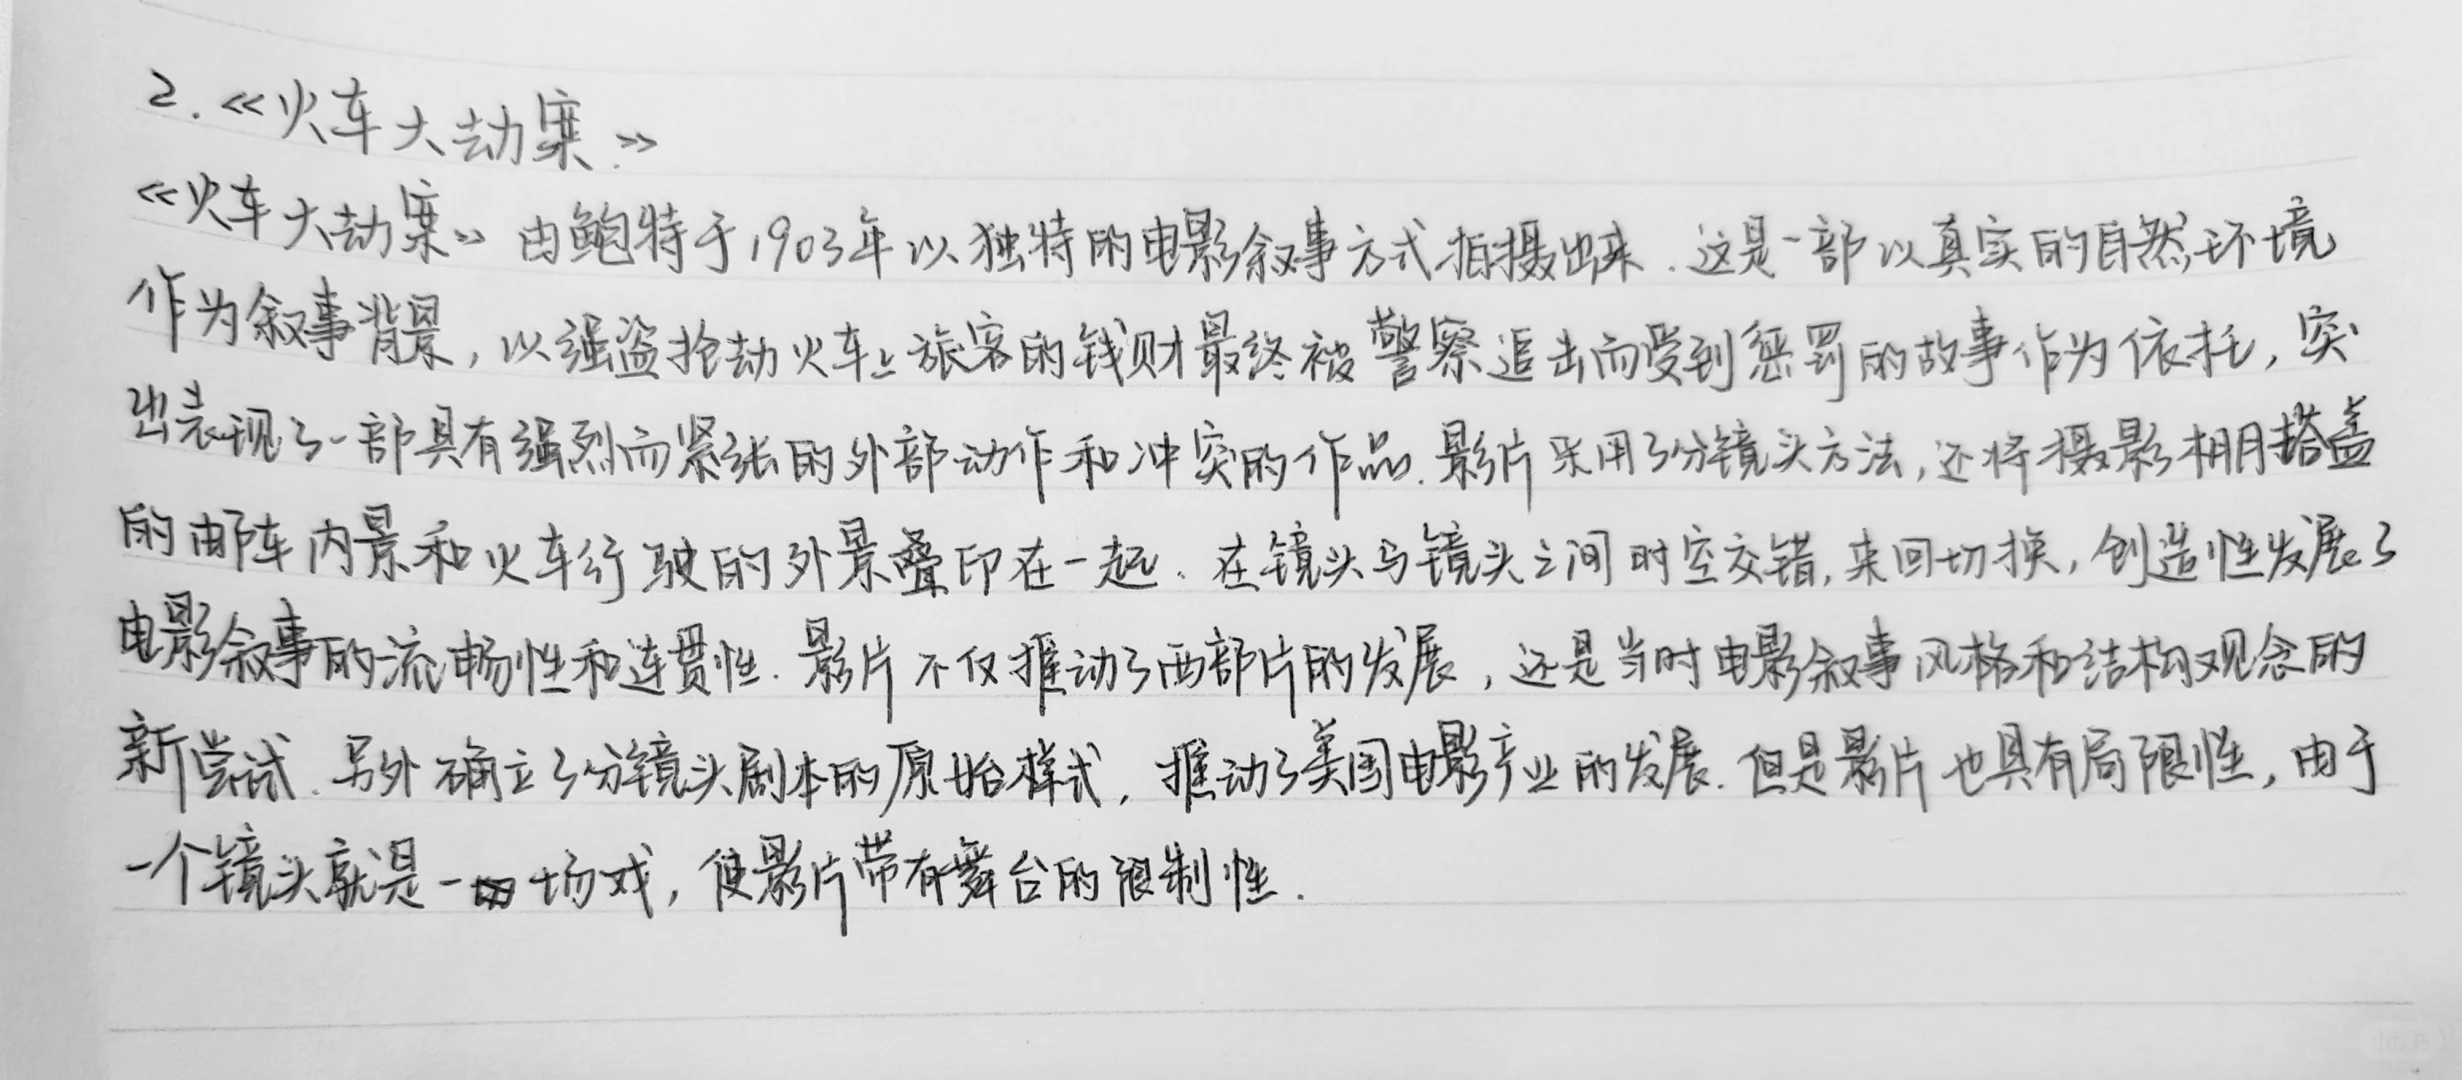 2.《火车大劫案.》
《火车大劫案》由鲍特于1903年以独特的电影叙事方式拍摄出来.这是一部以真实的自然环境
作为叙事背景,以强盗抢劫火车上旅客的钱财最终被警察追击而受到惩罚的故事作为依托,突
出表现了一部具有强烈而紧张的外部动作和冲突的作品.影片采用了分镜头方法,还将摄影棚搭盖
的邮车内景和火车行驶的外景叠印在一起.在镜头与镜头之间时空交错,来回切换,创造性发展了
电影叙事的流畅性和连贯性.影片不仅推动了西部片的发展,还是当时电影叙事风格和结构观念的
新尝试.另外确立了分镜头剧本的原始样式,推动了美国电影产业的发展.但是影片也具有局限性,由于
一个镜头就是一场戏,使影片带有舞台的限制性.